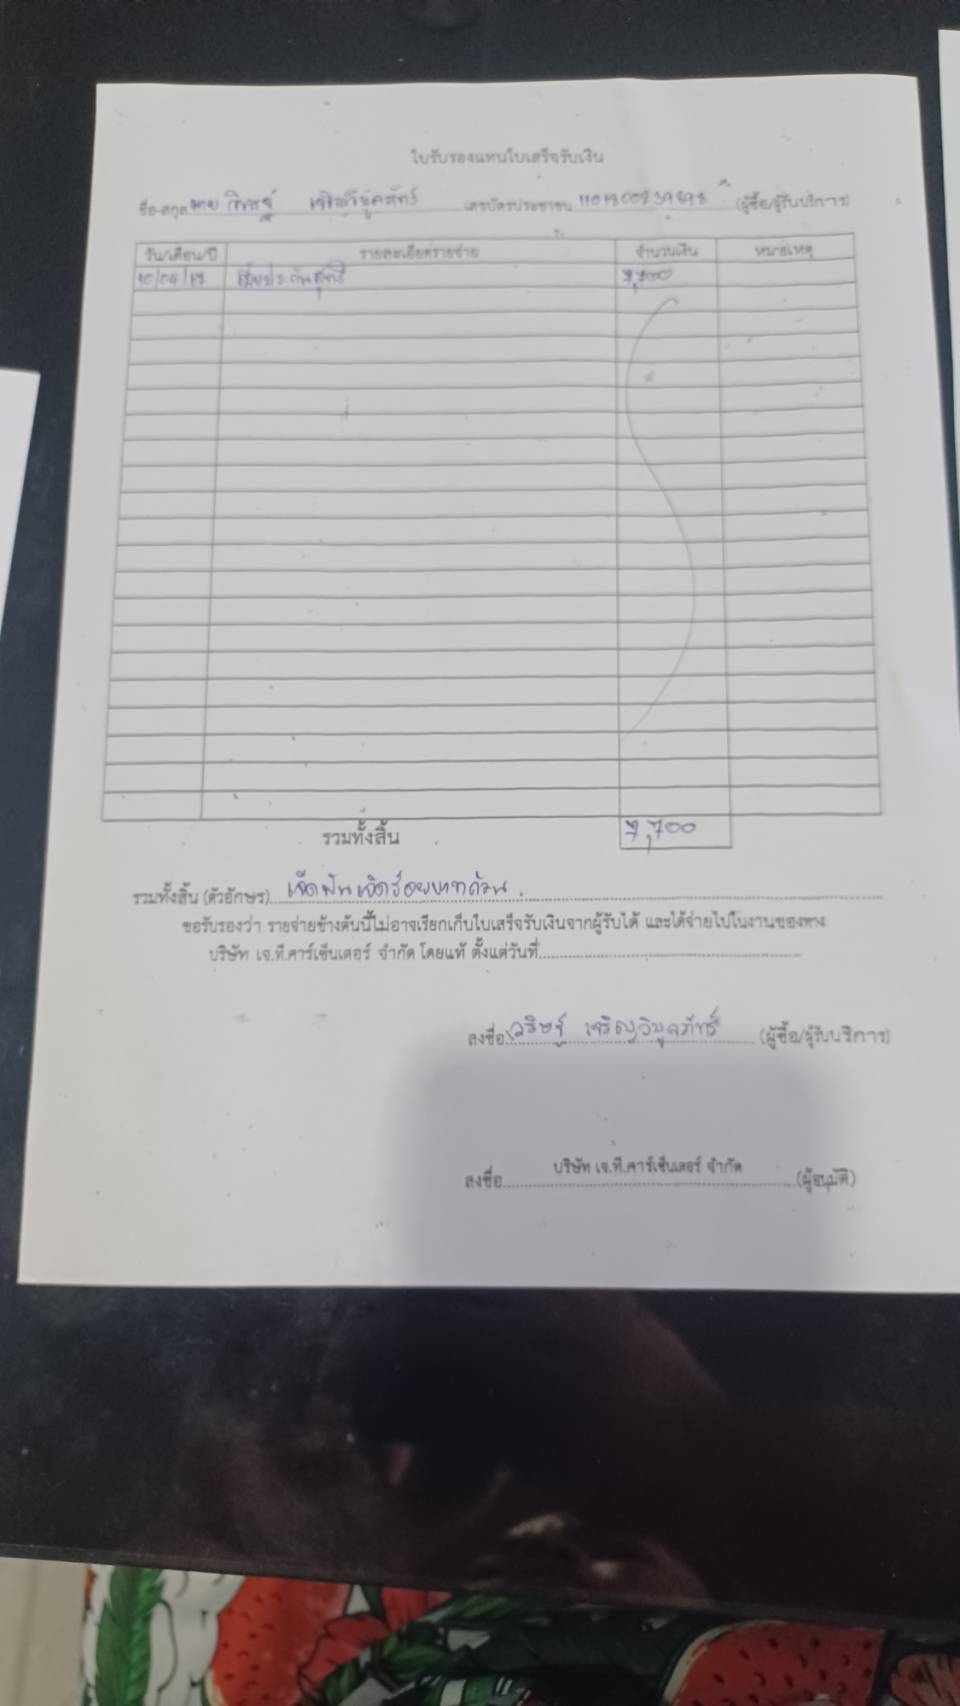 ใบรับรองแทนใบเสร็จรับเงิน
ชื่อ-สกุล นาย เลขบัตรประชาชน (ผู้ซื้อ/ผู้รับบริการ)
วัน/เดือน/ปี รายละเอียดรายจ่าย จำนวนเงิน หมายเหตุ
7,700
รวมทั้งสิ้น 7,700
รวมทั้งสิ้น (ตัวอักษร) เจ็ดพันเจ็ดร้อยบาทถ้วน
ขอรับรองว่า รายจ่ายข้างต้นนี้ไม่อาจเรียกเก็บใบเสร็จรับเงินจากผู้รับได้ และได้จ่ายไปในงานของทาง
บริษัท เจ.ที.คาร์เซ็นเตอร์ จำกัด โดยแท้ ตั้งแต่วันที่
ลงชื่อ (ผู้ซื้อ/ผู้รับบริการ)
บริษัท เจ.ที.คาร์เซ็นเตอร์ จำกัด
ลงชื่อ (ผู้อนุมัติ)